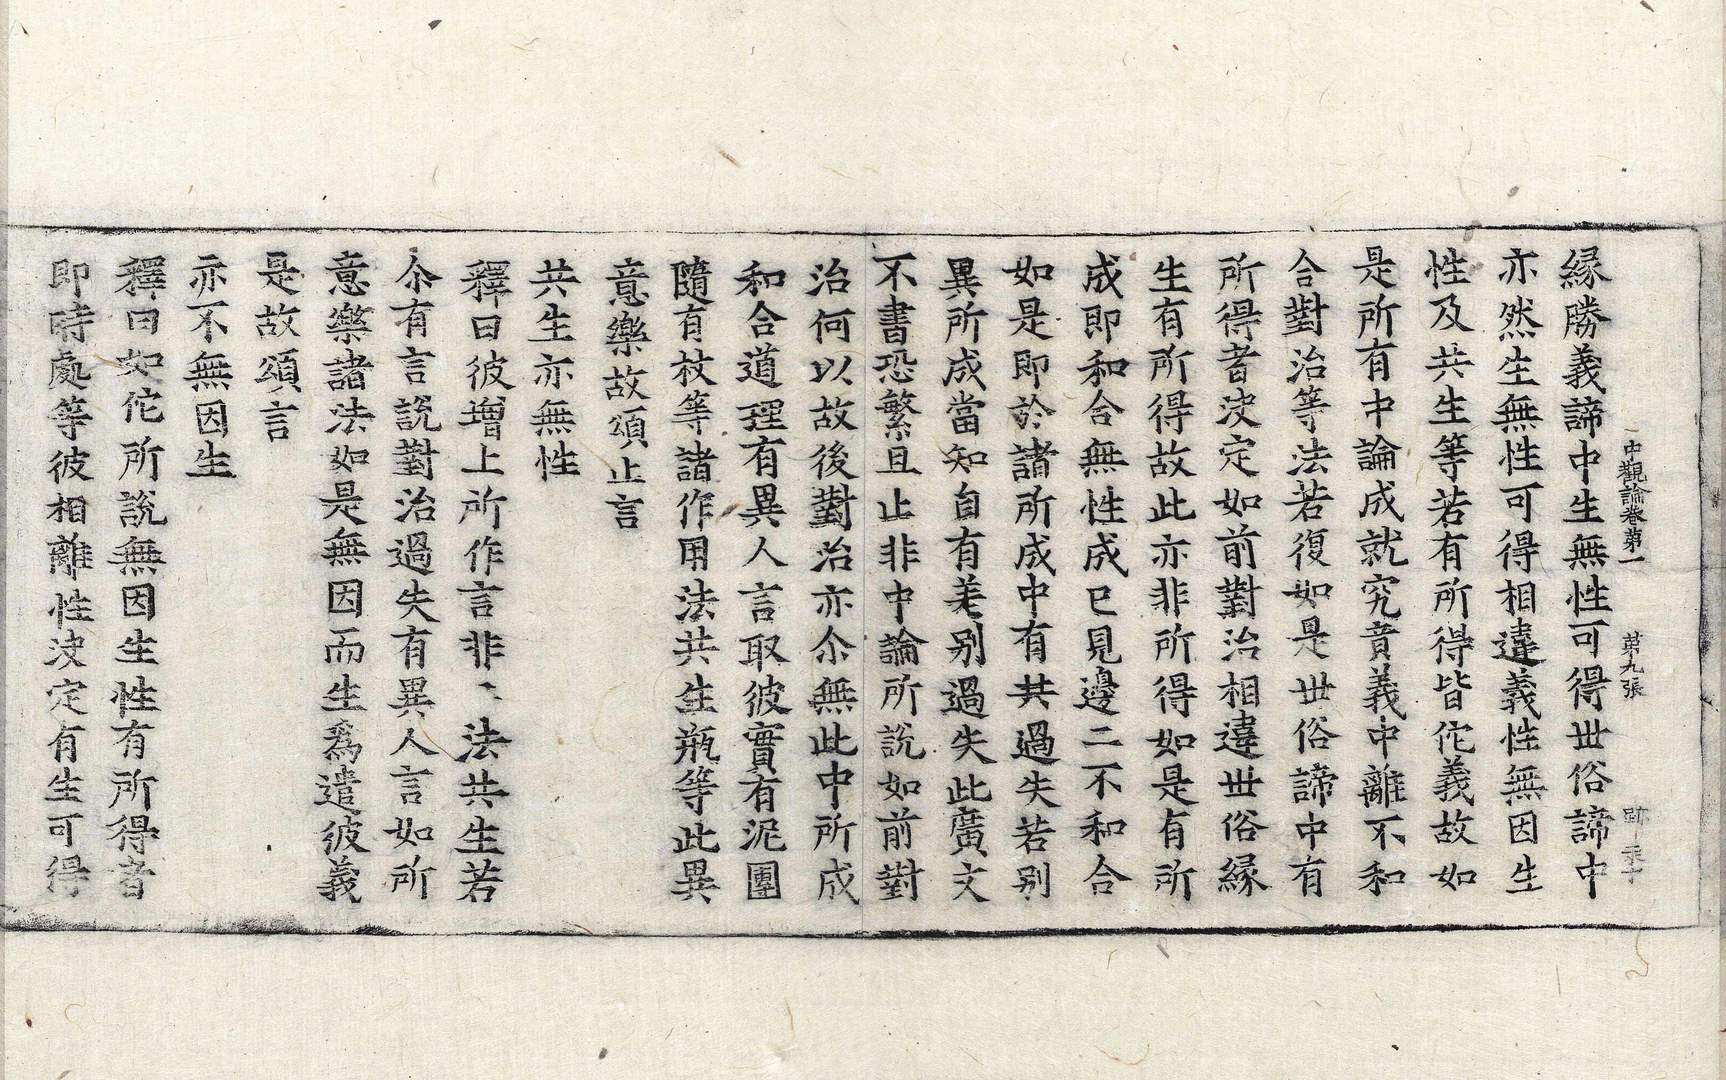 中觀論卷第一 第九張
緣勝義諦中生無性可得世俗諦中
亦然生無性可得相違義性無因生
性及共生等若有所得皆佗義故如
是所有中論成就究竟義中離不和
合對治等法若復如是世俗諦中有
所得者決定如前對治相違世俗緣
生有所得故此亦非所得如是有所
成即和合無性成已見邊二不和合
如是即於諸所成中有共過失若别
異所成當知自有差别過失此廣文
不書恐繁且止非中論所說如前對
治何以故後對治亦尒無此中所成
和合道理有異人言取彼實有泥團
隨有杖等諸作用法共生瓶等此異
意樂故頌止言
共生亦無性
釋曰彼增上所作言非 法共生若
尒有言說對治過失有異人言如所
意樂諸法如是無因而生爲遣彼義
是故頌言
亦不無因生
釋曰如佗所說無因生性有所得者
即時處等彼相離性決定有生可得